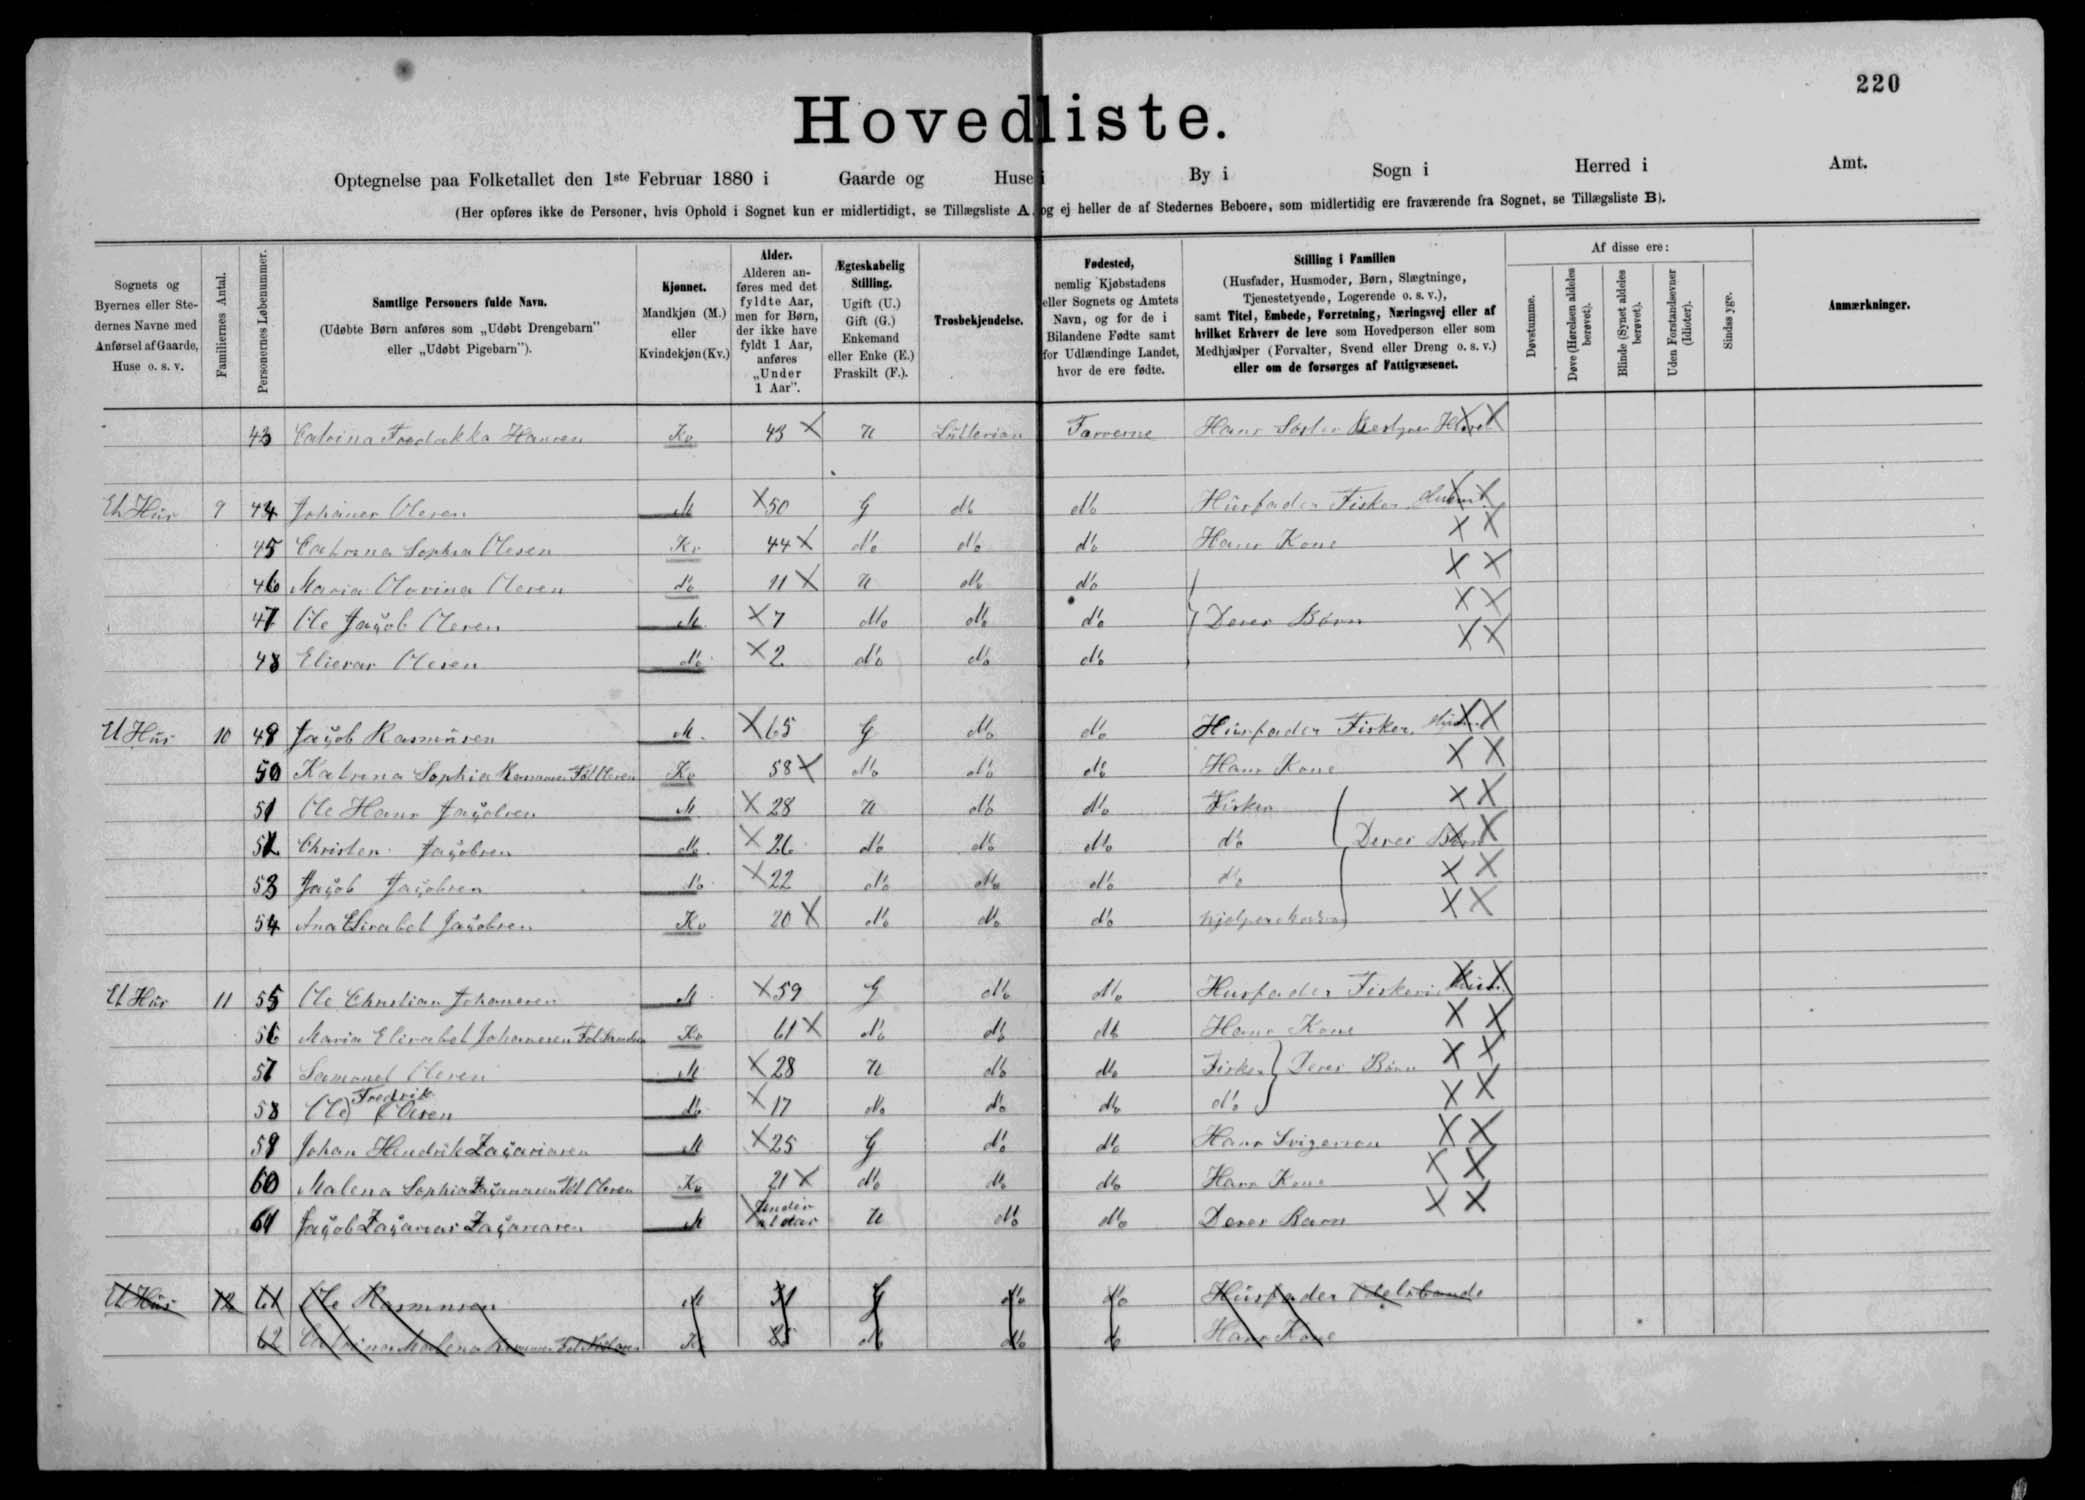 220
Hovedliste.
Optegnelse paa Folketallet den 1ste Februar 1880 i Gaarde og Huse i By i Sogn i Herred i Amt.
(Her opføres ikke de Personer, hvis Ophold i Sognet kun er midlertidigt, se Tillægsliste A, og ej heller de af Stedernes Beboere, som midlertidig ere fraværende fra Sognet, se Tillægsliste B).
Sognets og Byernes eller Stedernes Navne med Anførsel af Gaarde, Huse o. s. v.
Familiernes Antal.
Personernes Løbenummer.
Samtlige Personers fulde Navn.
(Udøbte Børn anføres som „Udøbt Drengebarn" eller „Udøbt Pigebarn").
Kjønnet.
Mandkjøn (M.) eller Kvindekjøn (Kv.)
Alder.
Alderen anføres med det fyldte Aar, men for Børn, der ikke have fyldt 1 Aar, anføres „Under 1 Aar".
Ægteskabelig Stilling.
Ugift (U.) Gift (G.) Enkemand eller Enke (E.) Fraskilt (F.).
Trosbekjendelse.
Fødested,
nemlig Kjøbstadens eller Sognets og Amtets Navn, og for de i Bilandene Fødte samt for Udlændinge Landet, hvor de ere fødte.
Stilling i Familien
(Husfader, Husmoder, Børn, Slægtninge, Tjenestetyende, Logerende o. s. v.),
samt Titel, Embede, Forretning, Næringsvej eller af hvilket Erhverv de leve som Hovedperson eller som Medhjælper (Forvalter, Svend eller Dreng o. s. v.) eller om de forsørges af Fattigvæsenet.
Af disse ere:
Døvstumme.
Døve (Hørelsen aldeles berøvet).
Blinde (Synet aldeles berøvet).
Uden Forstandsevner (Idioter).
Sindssyge.
Anmærkninger.
43 Catrina Fredrekka Hansen Kv 43 X U Lutterian Færrerne Hans Søster X X
Et Hus 9 44 Johanes Olesen M X 50 G do do Husfader Fisker X X
45 Catrina Sophia Olesen Kv 44 X do do do Hans Kone X X
46 Maria Olevina Olesen do 11 X U do do X X
47 Ole Jacob Olesen M X 7 do do do Deres Børn X X
48 Elieser Olesen do X 2 do do do X X
Et Hus 10 49 Jacob Rasmusen M X 65 G do do Husfader Fisker X X
50 Katrina Sophia Rasmusen Fød Olesen Kv 58 X do do do Hans Kone X X
51 Ole Hans Jacobsen M X 28 U do do Fisker X X
52 Christen Jacobsen do X 26 do do do do Deres Børn X X
53 Jacob Jacobsen do X 22 do do do do X X
54 Ana Elisabet Jacobsen Kv 20 X do do do X X
Et Hus 11 55 Ole Christian Johanesen M X 59 G do do Husfader Fiskeri X X
56 Maria Elisabet Johanesen Kv 61 X do do do Hans Kone X X
57 Samouel Olesen M X 28 U do do Fisker Deres Børn X X
58 Ole Fredrik Olesen do X 17 do do do do X X
59 Johan Hendrik Zacariasen M X 25 G do do Hans Svigersøn X X
60 Malena Sophia Zacariasen Fød Olesen Kv 21 X do do do Hans Kone X X
61 Jacob Zacarias Zacariasen M X Under 1 Aar U do do Deres Barn X X
Et Hus 12 61 Ole Rasmusen M G do do Husfader
62 Catrina Malena Kv do do do Hans Kone